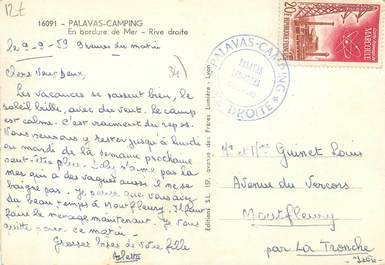 12€
16091 - PALAVAS-CAMPING
En bordure de Mer - Rive droite
le 9-9-59 9 heures du matin
34
Chers Vous Deux,
Les vacances se passent bien, le
soleil brille, avec du vent. le camp
est calme. C'est vraiment du repos.
Nous pensons y rester jusqu'à lundi
ou mardi de la semaine prochaine
peut-être plus. Joly n'aime pas la
mer qui a des vagues aussi il ne se
baigne pas. Je pense que vous avez
du beau temps à Montfleury. Il faut
faire le ménage maintenant. Je vous
quitte pour ce matin.
Grosses bises de votre fille
Arlette
Edition S.L. 157, avenue des Frères Lumière - Lyon
PALAVAS-CAMPING
RIVE DROITE
20F REPUBLIQUE FRANÇAISE
MARCOULE
Mr et Mme Guinet Louis
Avenue du Vercors
Montfleury
par La Tronche
- Isère -